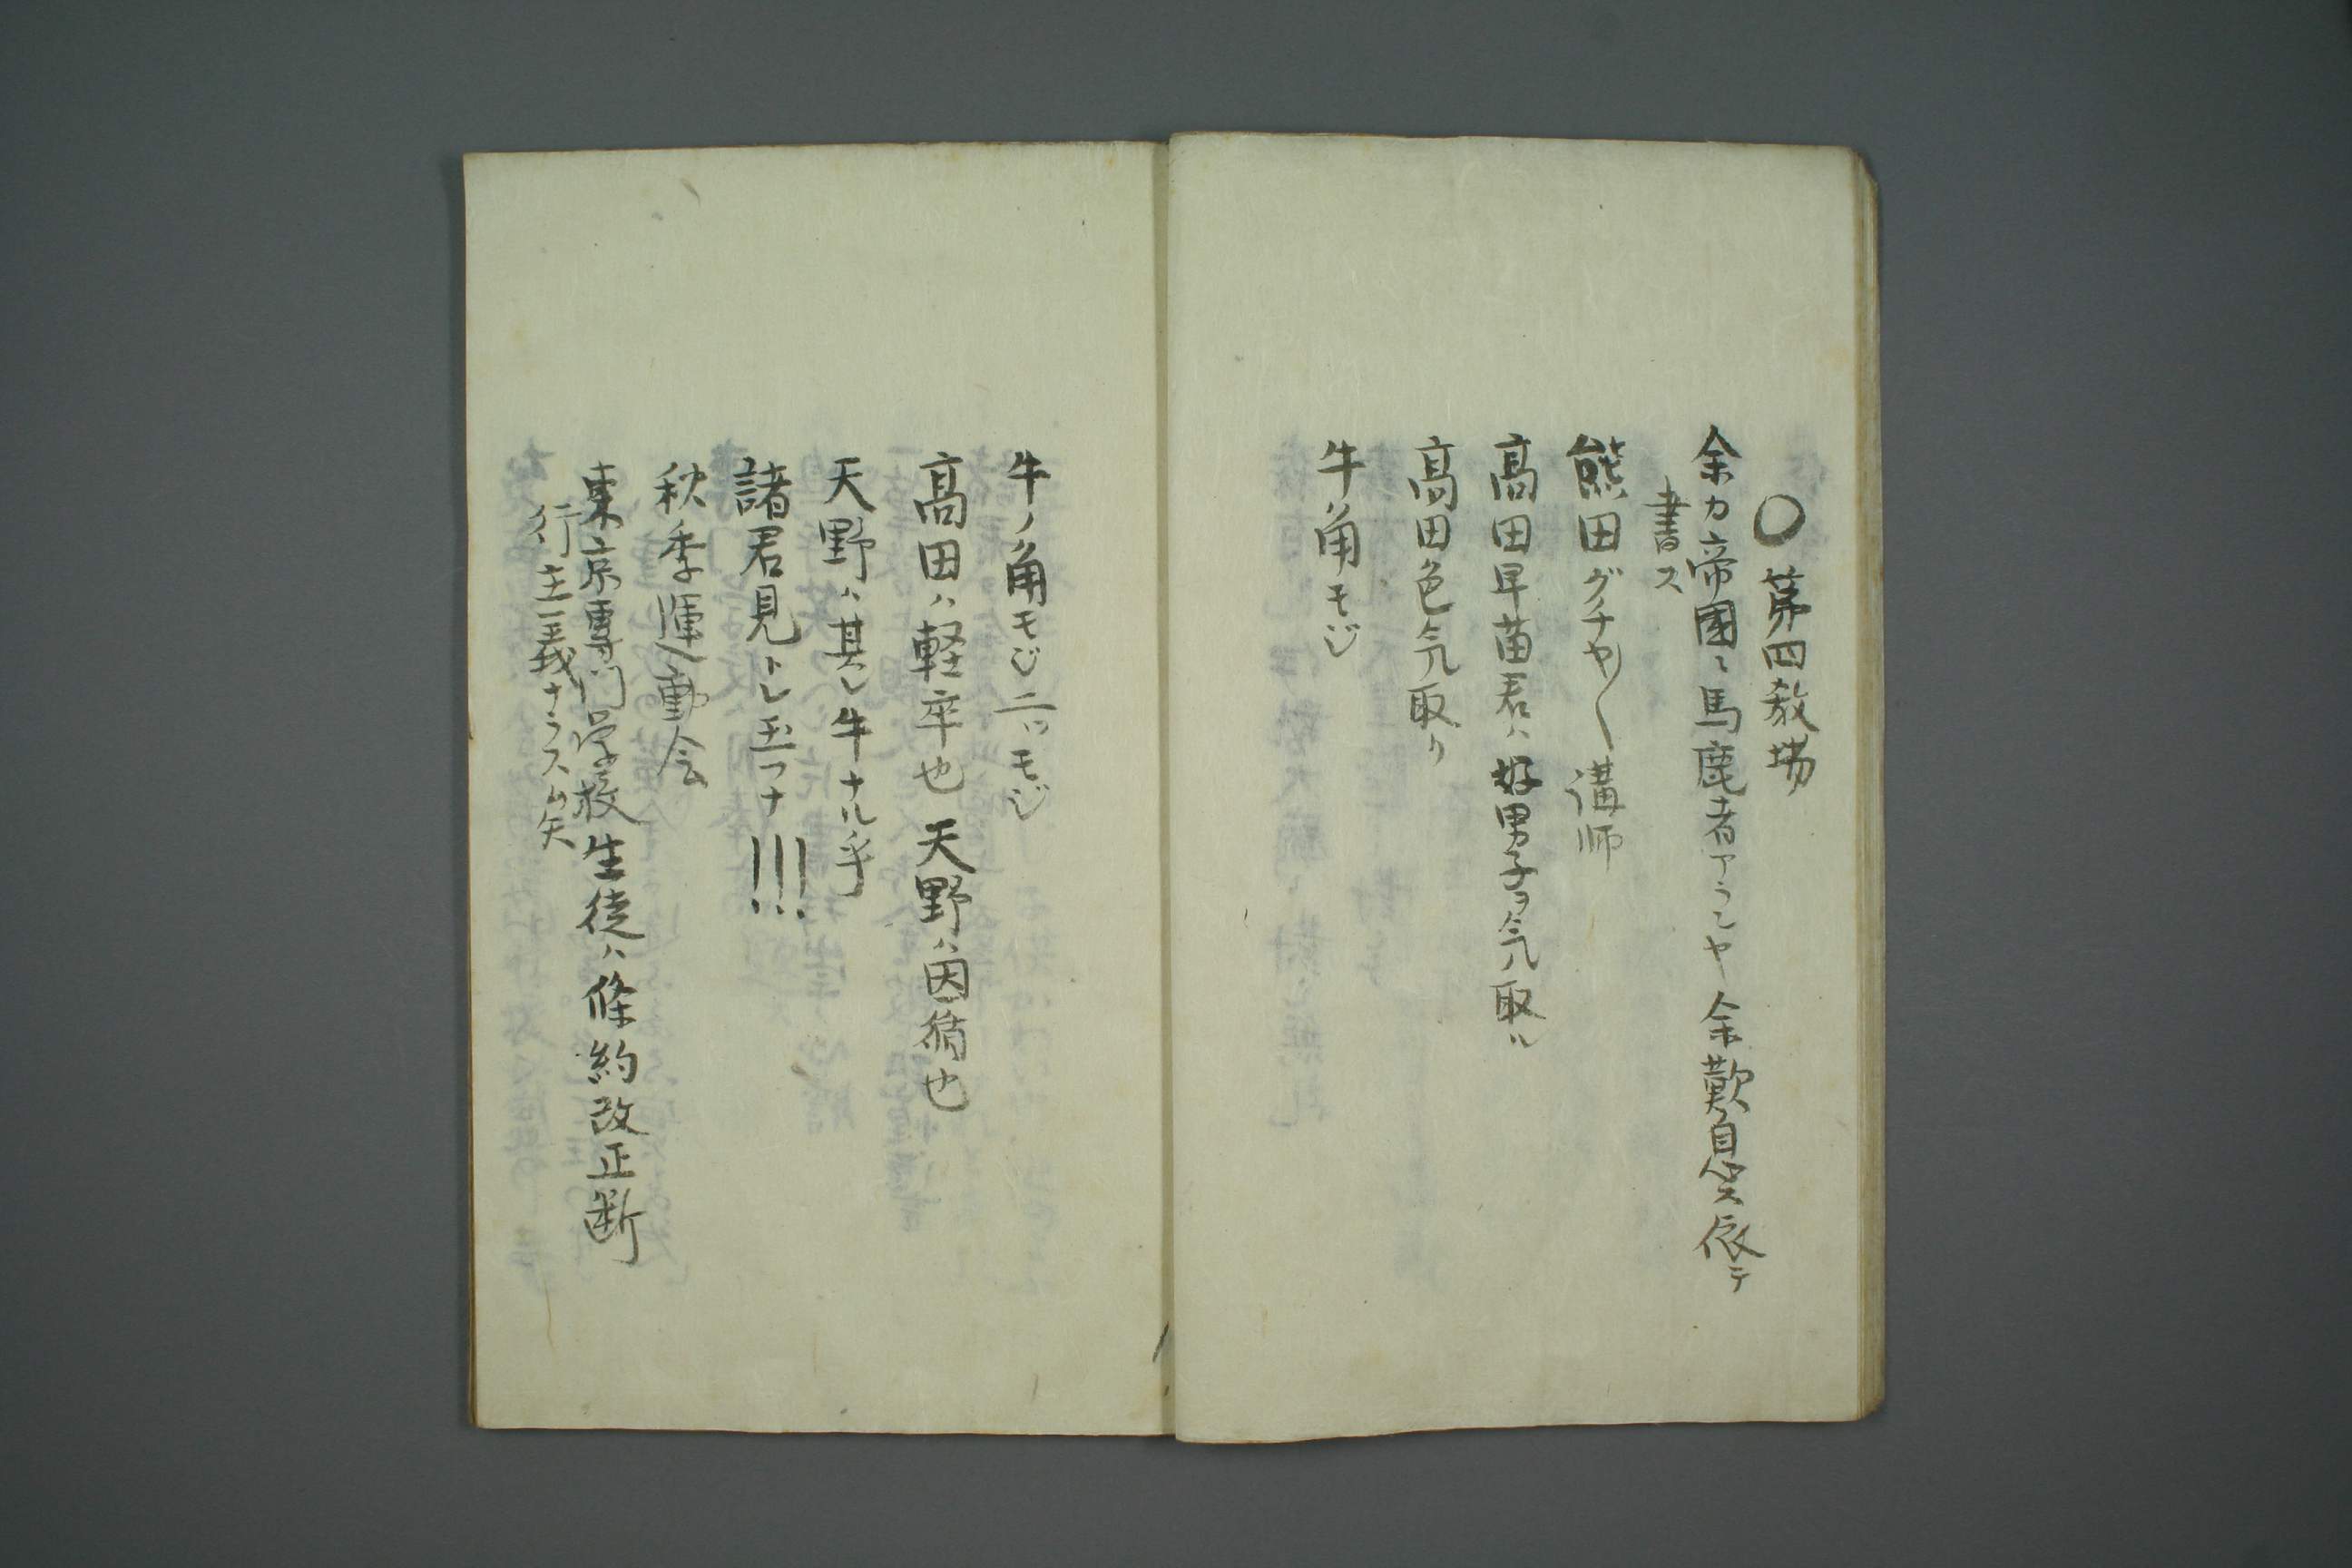 〇第四教場
余カ帝國ニ馬鹿者アランヤ余歎息ス依テ
書ス
熊田グチヤ〱講師
髙田早苗君ハ好男子ヲ気取ル
髙田色気取リ
牛ノ角モジ
牛ノ角モジ二ツモジ
髙田ハ軽卒也天野ハ因循也
天野ハ其レ牛ナル乎
諸君見トレ玉フナ!!!
秋季運動会
東京専門学校生徒ハ條約改正断
行主義ナラス